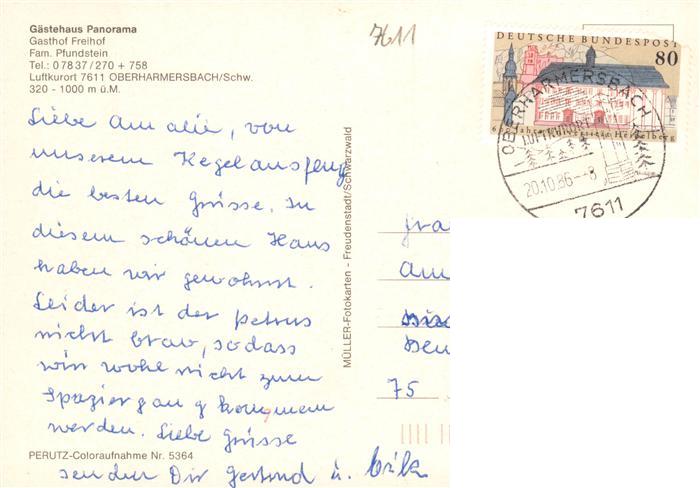 Gästehaus Panorama
Gasthof Freihof
Fam. Pfundstein
Tel.: 0 78 37 / 270 + 758
Luftkurort 7611 OBERHARMERSBACH/Schw.
320 - 1000 m ü.M.
7611
DEUTSCHE BUNDESPOST
80
OBERHARMERSBACH
LUFTKURORT
20.10.86 - 8
7611
Liebe Amalie, von
unserem Kegelausflug
die besten Grüsse. In
diesem schönen Haus
haben wir gewohnt.
Leider ist der Petrus
nicht brav, sodass
wir wohl nicht zum
Spaziergang kommen
werden. Liebe Grüsse
senden Dir Gertrud u.
PERUTZ-Coloraufnahme Nr. 5364
MÜLLER-Fotokarten - Freudenstadt/Schwarzwald
Fra
Am
75